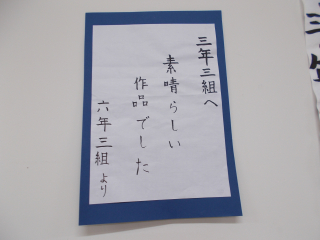 三年三組へ
素晴らしい
作品でした
六年三組より